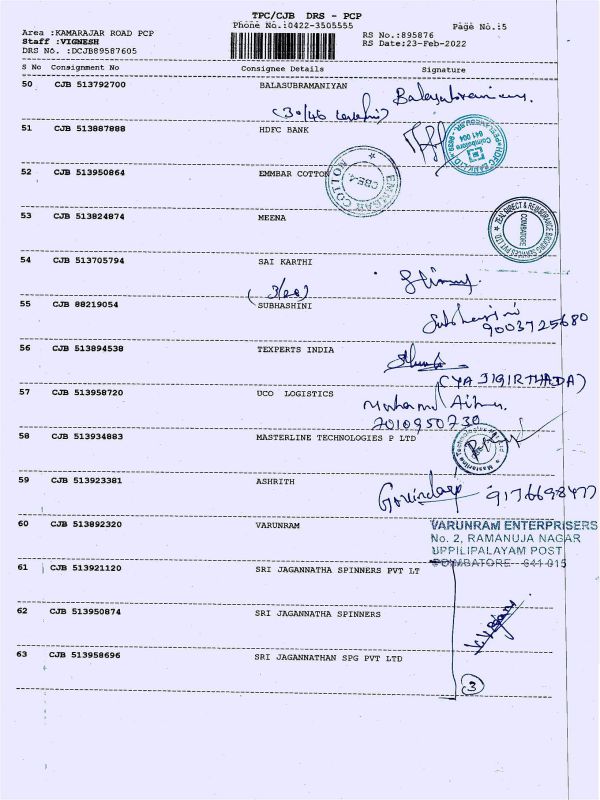 TPC/CJB DRS - PCP
Phone No.:0422-3505555
Page No.:5
Area :KAMARAJAR ROAD PCP
RS No.:895876
Staff :VIGNESH
RS Date;23-Feb-2022
DRS No. :DCJB89587605
S No Consignment No Consignee Details Signature
50 CJB 513792700 BALASUBRAMANIYAN
Balasubramaniyan.
51 CJB 513887888 HDFC BANK
52 CJB 513950864 EMMBAR COTTON
CBE-4
53 CJB 513824874 MEENA
ZEAL DIRECT & REINSURANCE BROKING SERVICES PVT LTD
COIMBATORE
54 CJB 513705794 SAI KARTHI
55 CJB 88219054 SUBHASHINI
9003725680
56 CJB 513894538 TEXPERTS INDIA
57 CJB 513958720 UCO LOGISTICS
7010950730
58 CJB 513934883 MASTERLINE TECHNOLOGIES P LTD
59 CJB 513923381 ASHRITH
Govindaraj 9176698477
60 CJB 513892320 VARUNRAM
VARUNRAM ENTERPRISERS
No. 2, RAMANUJA NAGAR
UPPILIPALAYAM POST
COIMBATORE - 641 015
61 CJB 513921120 SRI JAGANNATHA SPINNERS PVT LT
62 CJB 513950874 SRI JAGANNATHA SPINNERS
63 CJB 513958696 SRI JAGANNATHAN SPG PVT LTD
3